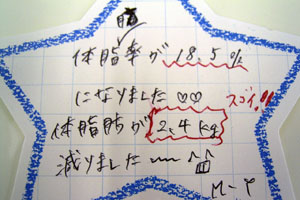 体脂率が18.5%
になりました♡♡
スゴイ!!
体脂肪が2.4kg
減りました〜〜♪
M-Y